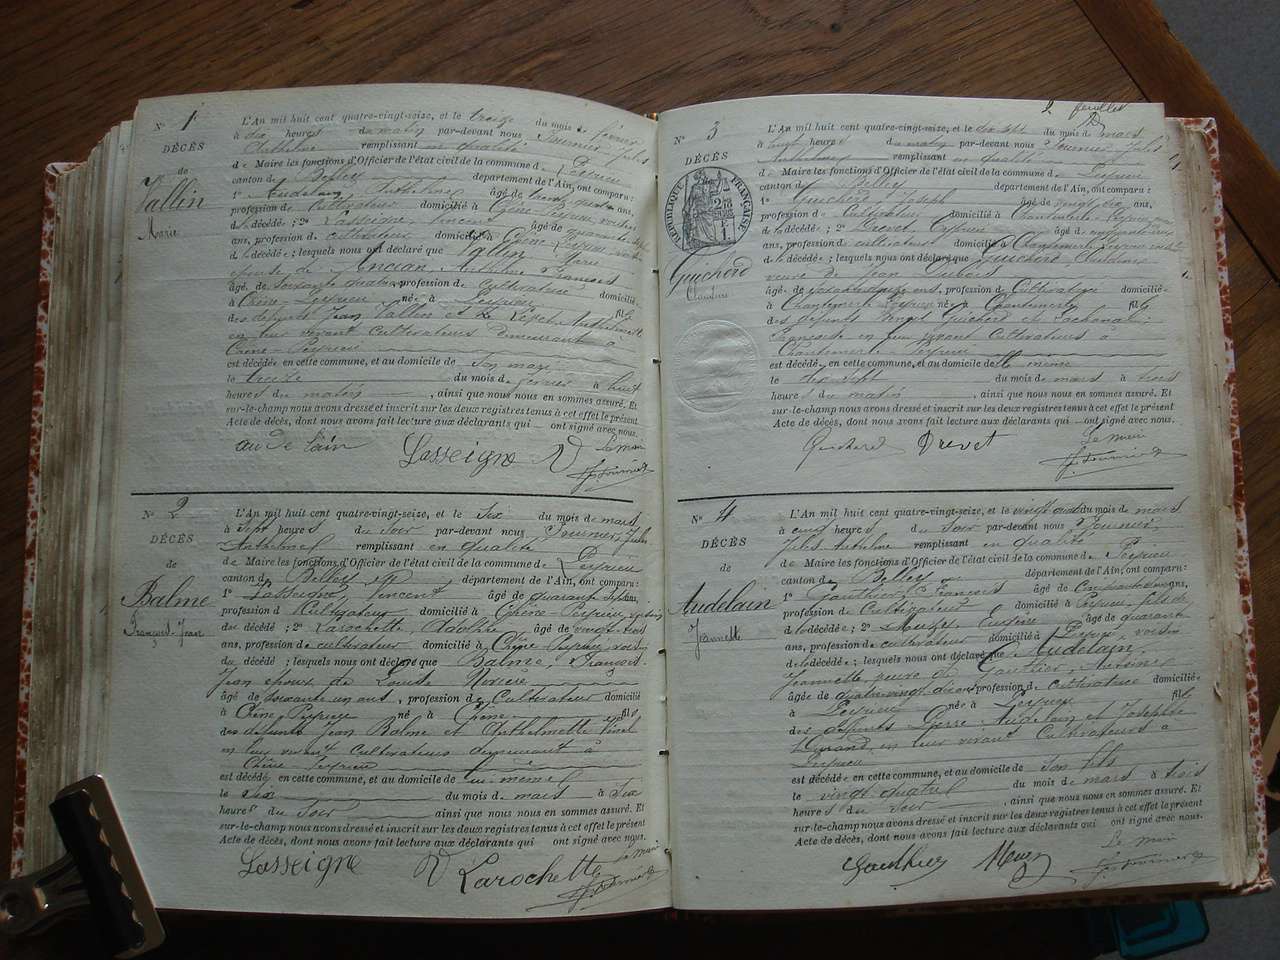 N° 1
DÉCÈS
de
Vallin
Marie
L'An mil huit cent quatre-vingt-seize, et le treize du mois de février
à dix heures du matin par-devant nous Fournier Jules
Anthelme remplissant en qualité
de Maire les fonctions d'Officier de l'état civil de la commune de Peyrieu
canton de Belley département de l'Ain, ont comparu :
1° Audelain, Anthelme âgé de trente quatre ans,
profession de cultivateur domicilié à Chêne-Peyrieu voisin
de la décédée ; 2° Lasseigne Vincent âgé de quarante sept
ans, profession de cultivateur domicilié à Chêne Peyrieu
de la décédée ; lesquels nous ont déclaré que Vallin Marie
épouse de Ancian, Anthelme François
âgée de soixante quatre, profession de Cultivatrice domicilié
à Chêne-Peyrieu née à Peyrieu fille
des défunts Jean Vallin et Anthelmette
en leur vivant cultivateurs demeurant à
Chêne-Peyrieu
est décédée en cette commune, et au domicile de son mari
le treize du mois de février à huit
heures du matin, ainsi que nous nous en sommes assuré. Et
sur-le-champ nous avons dressé et inscrit sur les deux registres tenus à cet effet le présent
Acte de décès, dont nous avons fait lecture aux déclarants qui ont signé avec nous.
Lasseigne V Le maire
J Fournier
N° 2
DÉCÈS
de
Balme
François-Jean
L'An mil huit cent quatre-vingt-seize, et le six du mois de mars
à sept heures du soir par-devant nous Fournier, Jules
Anthelme remplissant en qualité
de Maire les fonctions d'Officier de l'état civil de la commune de Peyrieu
canton de Belley département de l'Ain, ont comparu :
1° Lasseigne, Vincent âgé de quarante sept ans,
profession de Cultivateur domicilié à Chêne-Peyrieu, voisin
du décédé ; 2° Larochette, Adolphe âgé de vingt-trois
ans, profession de cultivateur domicilié à Chêne Peyrieu voisin
du décédé ; lesquels nous ont déclaré que Balme, François-
Jean époux de Louise
âgé de soixante un ans, profession de Cultivateur domicilié
à Chêne, Peyrieu né à Chêne fils
des défunts Jean Balme et Anthelmette
en leur vivant Cultivateurs demeurant à
Chêne Peyrieu
est décédé en cette commune, et au domicile de lui-même
le six du mois de mars à six
heures du soir ainsi que nous nous en sommes assuré. Et
sur-le-champ nous avons dressé et inscrit sur les deux registres tenus à cet effet le présent
Acte de décès, dont nous avons fait lecture aux déclarants qui ont signé avec nous.
Lasseigne V Larochette Le maire
J Fournier
2 feuillet
N° 3
DÉCÈS
RÉPUBLIQUE FRANÇAISE
Guicherd
Claudine
L'An mil huit cent quatre-vingt-seize, et le dix sept du mois de mars
à vingt heures du matin par-devant nous Fournier Jules
Anthelme remplissant en qualité
de Maire les fonctions d'Officier de l'état civil de la commune de Peyrieu
canton de Belley département de l'Ain, ont comparu :
1° Guicherd, Joseph âgé de vingt six ans,
profession de Cultivateur domicilié à Chantemerle Peyrieu
de la décédée ; 2° Drevet, âgé de cinquante
ans, profession de cultivateur domicilié à Chantemerle Peyrieu
de la décédée ; lesquels nous ont déclaré que Guicherd Claudine
veuve de Jean Dubois
âgée de ans, profession de Cultivatrice domicilié
à Chantemerle Peyrieu née à Chantemerle fille
des défunts Guicherd et
Françoise en leur vivant Cultivateurs à
Chantemerle-Peyrieu
est décédée en cette commune, et au domicile d'elle même
le dix sept du mois de mars à trois
heures du matin, ainsi que nous nous en sommes assuré. Et
sur-le-champ nous avons dressé et inscrit sur les deux registres tenus à cet effet le présent
Acte de décès, dont nous avons fait lecture aux déclarants qui ont signé avec nous.
Guicherd Drevet Le maire
J Fournier
N° 4
DÉCÈS
de
Audelain
Jeannette
L'An mil huit cent quatre-vingt-seize, et le vingt quatre du mois de mars
à cinq heures du soir par-devant nous Fournier,
Jules Anthelme remplissant en qualité
de Maire les fonctions d'Officier de l'état civil de la commune de Peyrieu
canton de Belley département de l'Ain, ont comparu :
1° Gauthier, François âgé de ans,
profession de Cultivateur domicilié à Peyrieu, fils de
de la décédée ; 2° Meuge, âgé de quarante
ans, profession de cultivateur domicilié à Peyrieu voisin
de la décédée ; lesquels nous ont déclaré que Audelain,
Jeannette, veuve de Gauthier Antoine
âgée de quatre vingt deux, profession de cultivatrice domiciliée
à Peyrieu née à Peyrieu fille
des défunts Pierre Audelain et Josephte
Girand, en leur vivant Cultivateurs à
Peyrieu
est décédée en cette commune, et au domicile de son fils
le vingt quatre du mois de mars à trois
heures du soir, ainsi que nous nous en sommes assuré. Et
sur-le-champ nous avons dressé et inscrit sur les deux registres tenus à cet effet le présent
Acte de décès, dont nous avons fait lecture aux déclarants qui ont signé avec nous.
Gauthier Le maire
J Fournier